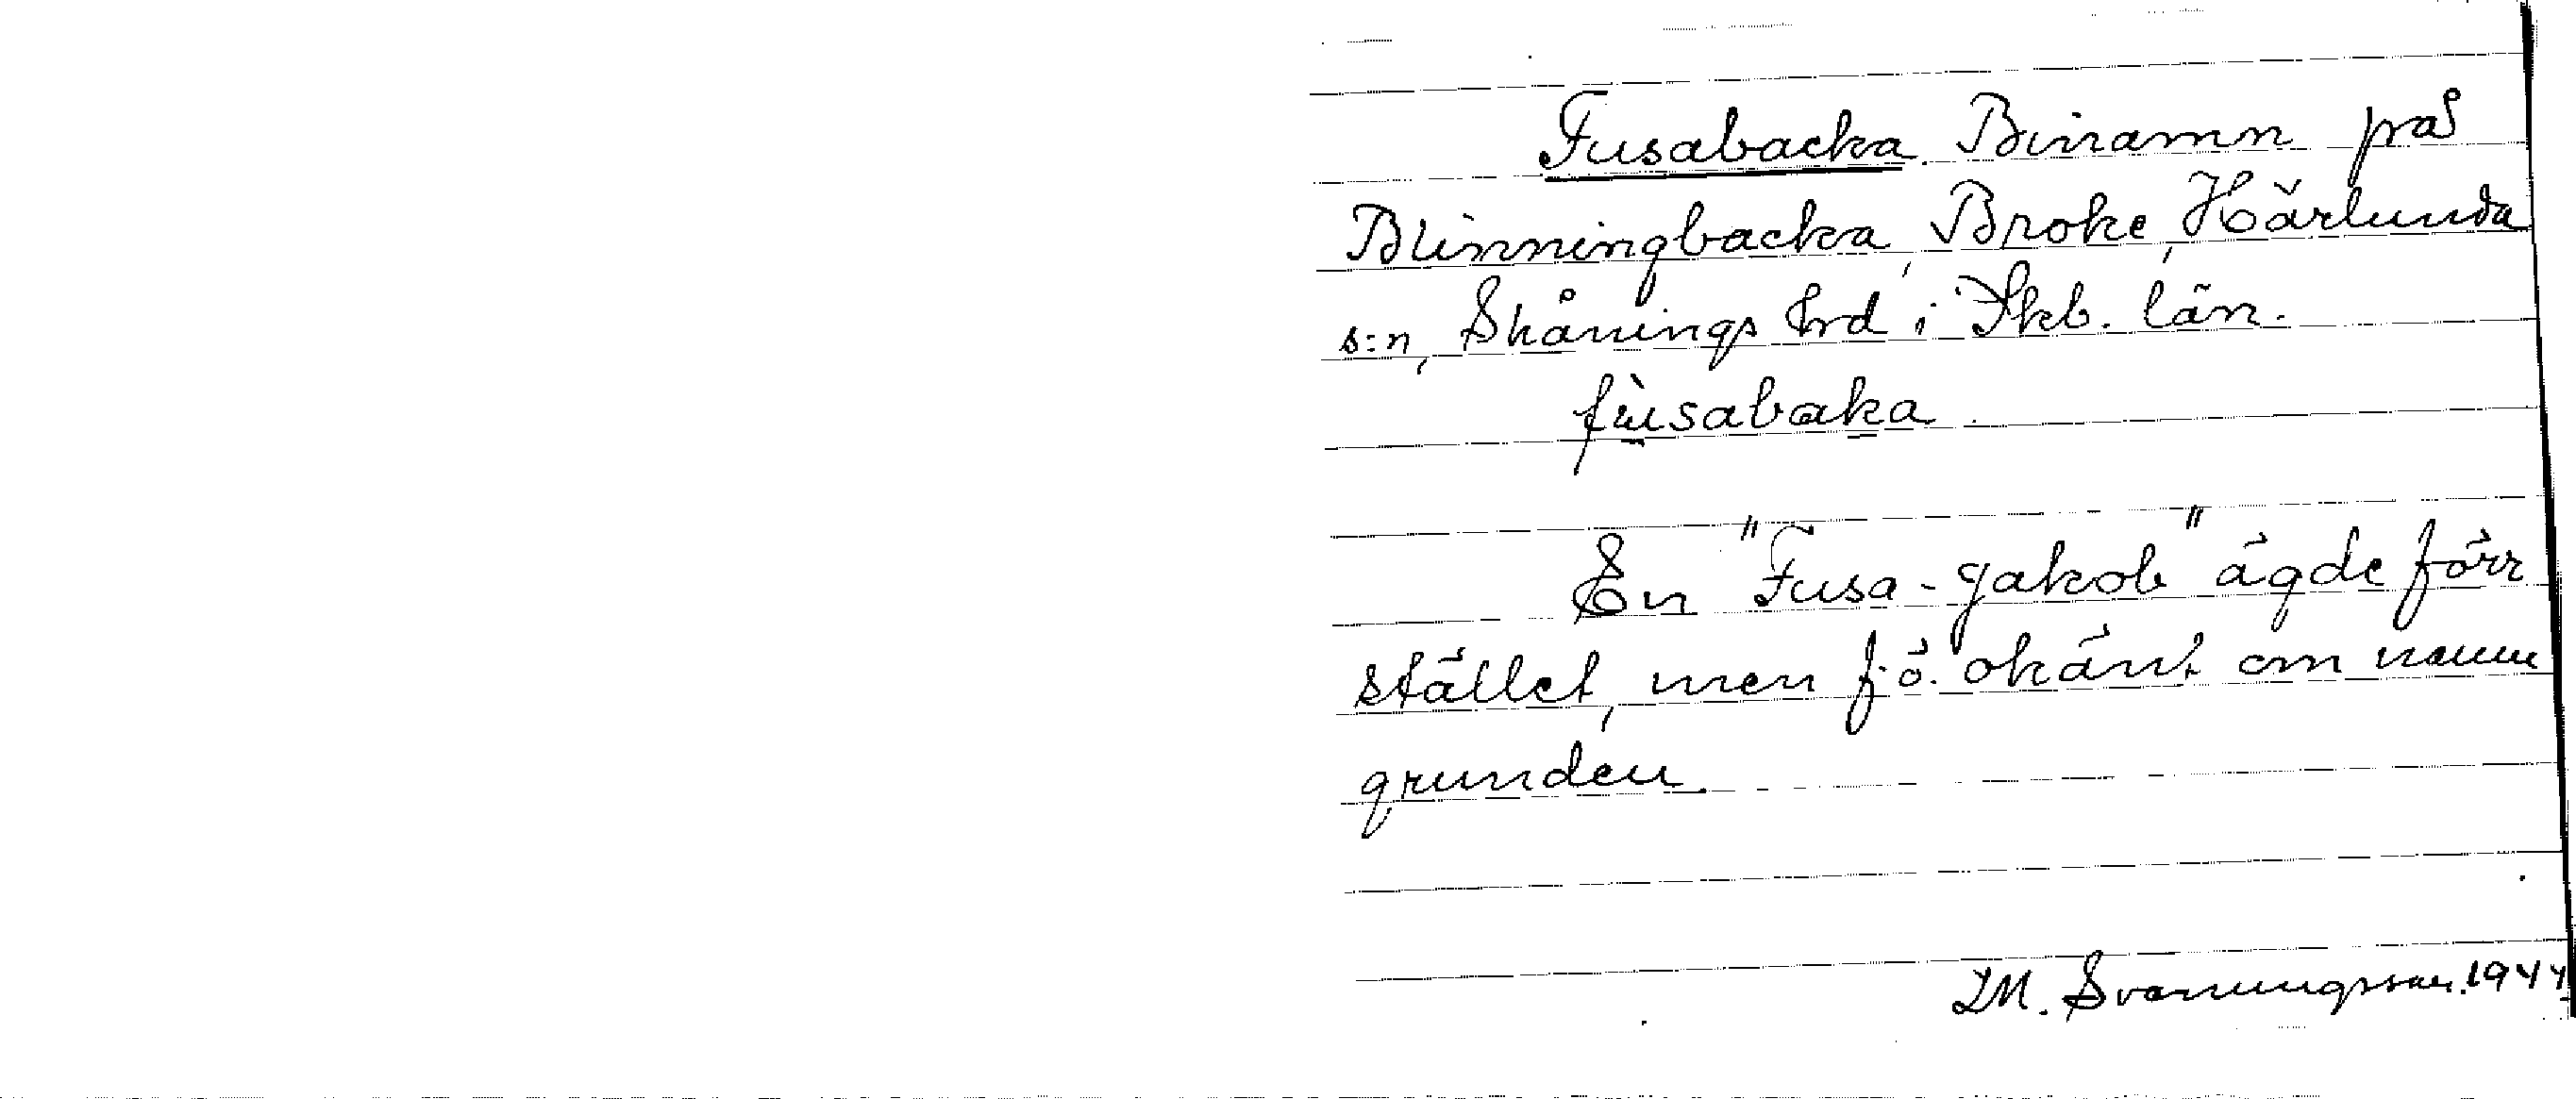 Fusabacka. Binamn på
Blinningbacka, Broke, Härlunda
s:n, Skånings hrd i Skb. län.
fùsabaka.
En "Fusa-Jakob" ägde förr
stället, men f.ö. okänt om namn
grunden.
IM. Svanungsson. 1944